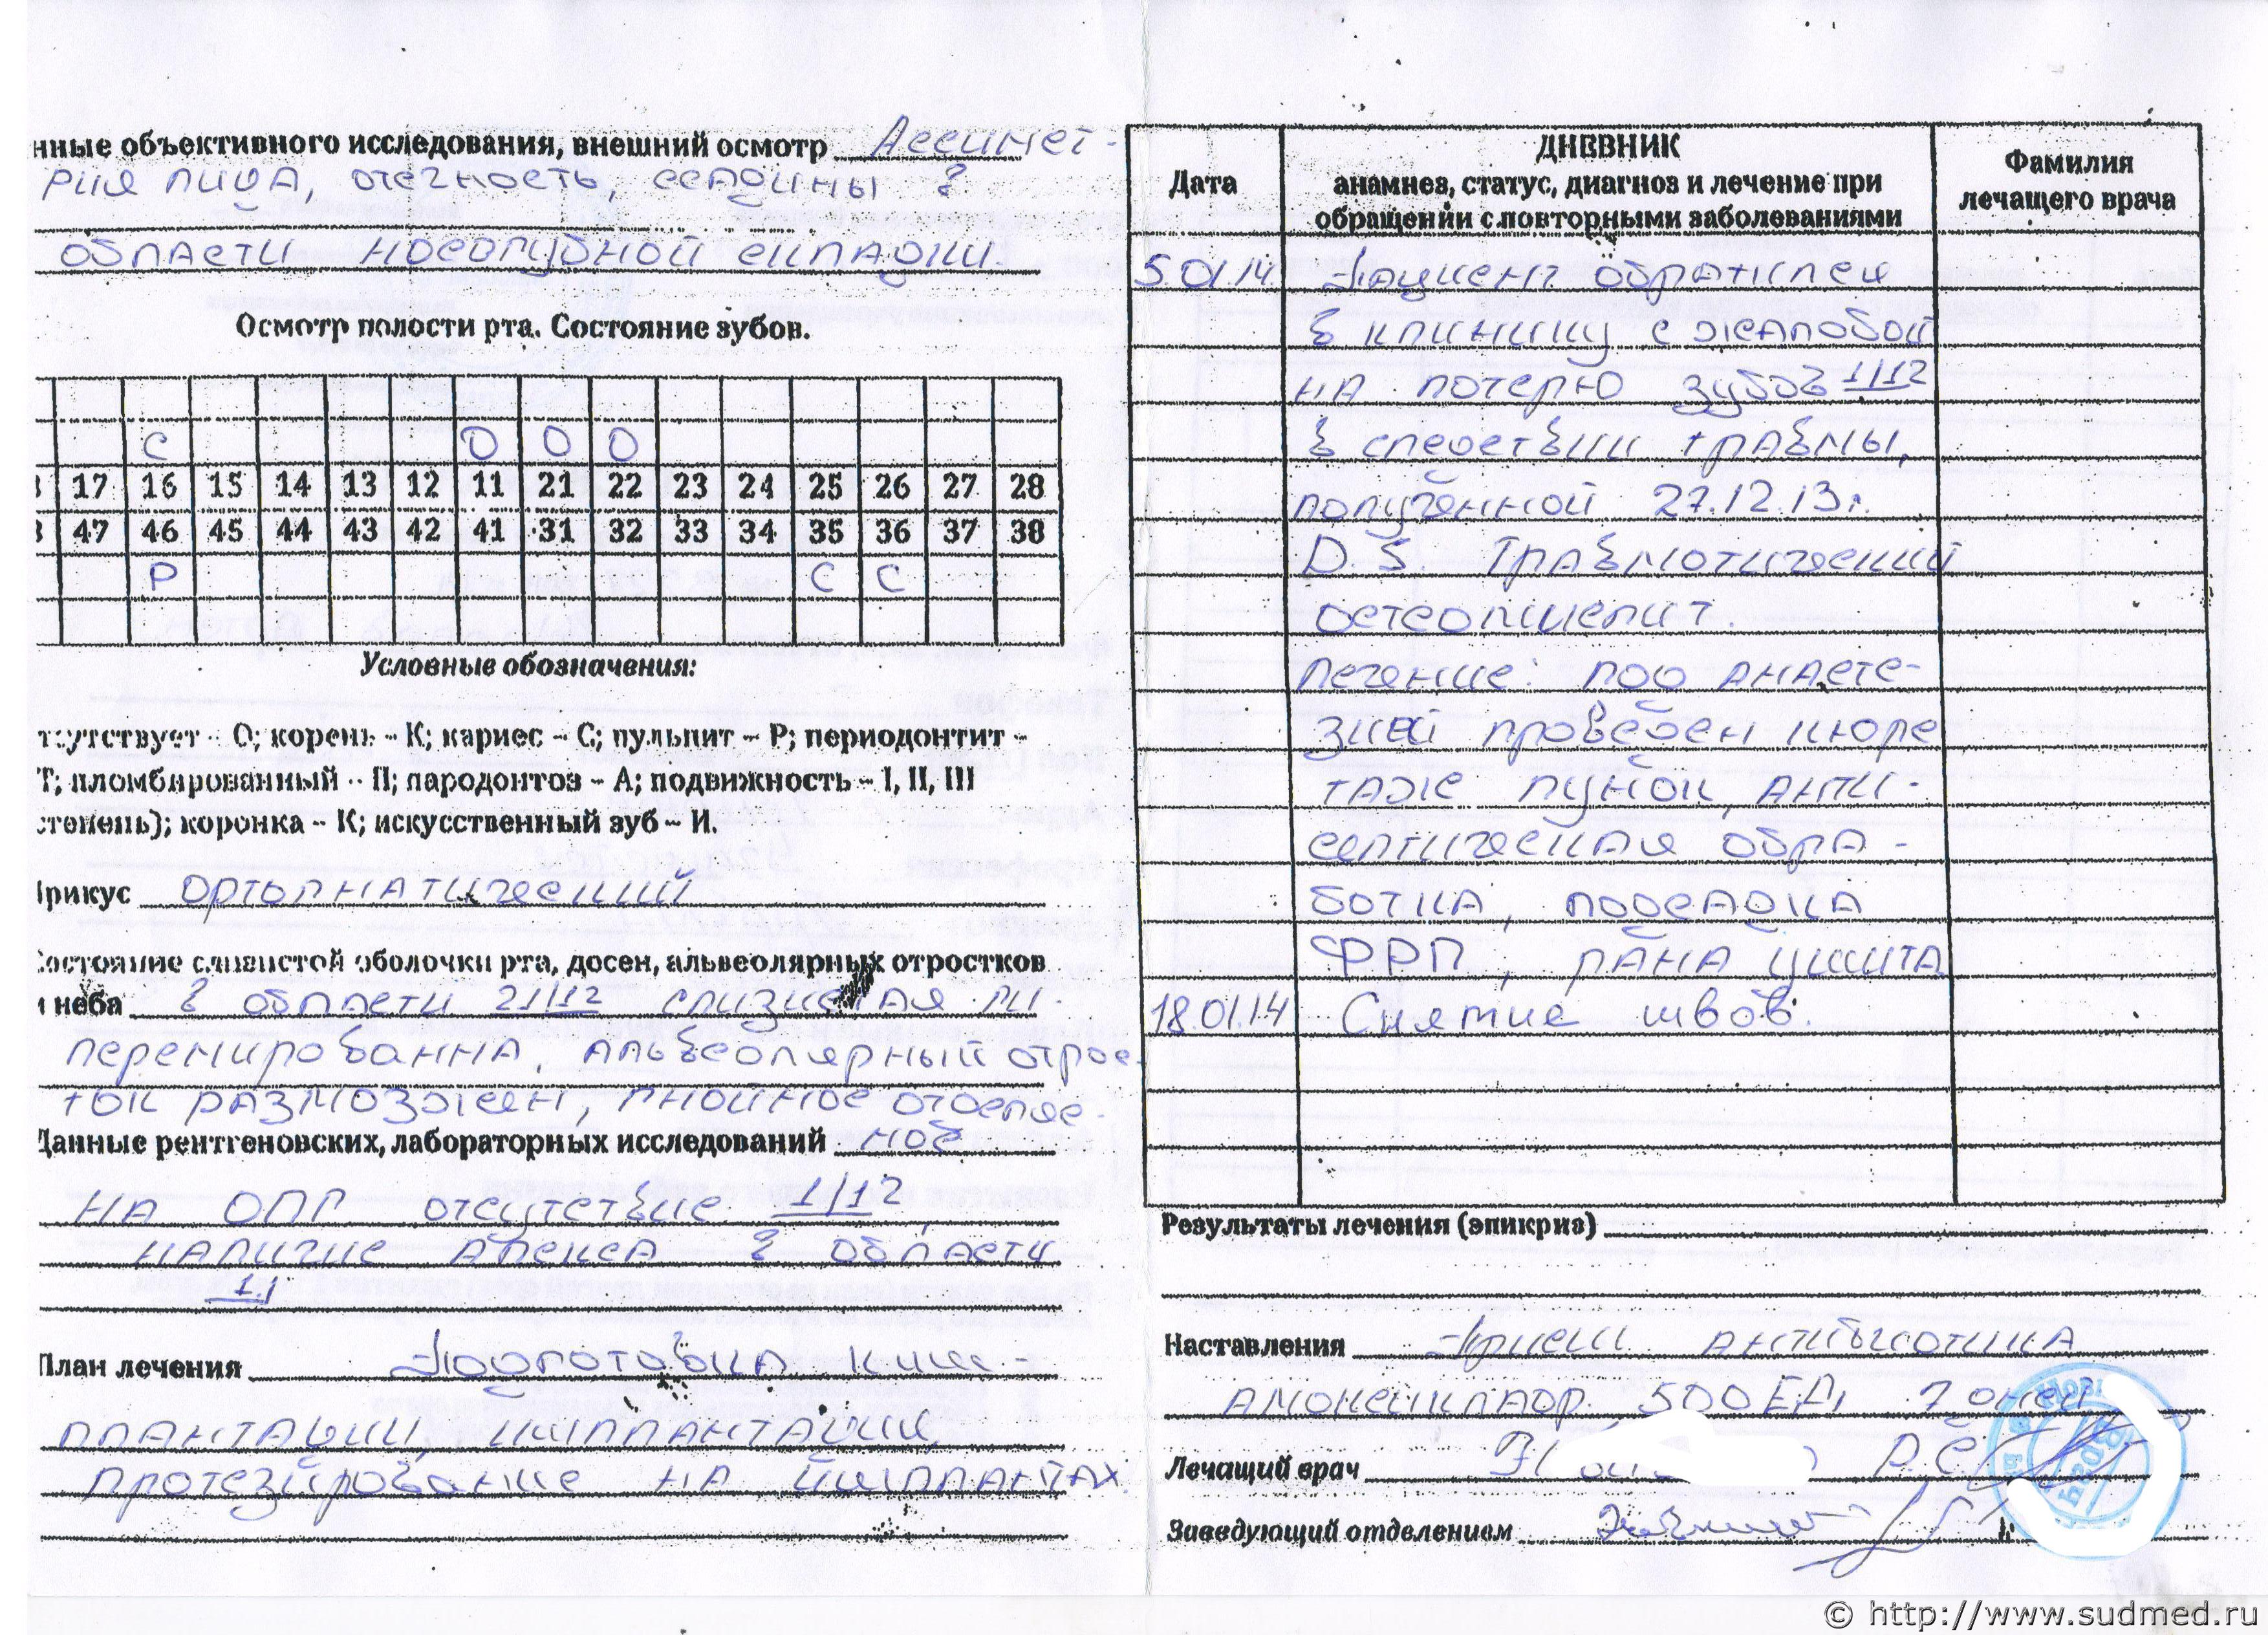 нные объективного исследования, внешний осмотр Ассимет-
рия лица, отечность, ссадины в
области носогубной складки.
Осмотр полости рта. Состояние зубов.
С О О О
17 16 15 14 13 12 11 21 22 23 24 25 26 27 28
47 46 45 44 43 42 41 31 32 33 34 35 36 37 38
Р С С
Условные обозначения:
тсутствует - О; корень - К; кариес - С; пульпит - Р; периодонтит -
Т; пломбированный - П; пародонтоз - А; подвижность - I, II, III
степень); коронка - К; искусственный зуб - И.
Прикус ортогнатический
Состояние слизистой оболочки рта, десен, альвеолярных отростков
и неба в области 21|12 слизистая ги-
перемированна, альвеолярный отрос-
ток размозжен, гнойное отделяе-
Данные рентгеновских, лабораторных исследований ное
на ОПГ отсутствие 1|12,
наличие апекса в области
1|
План лечения Подготовка к им-
плантации, имплантация,
протезирование на имплантах.
Дата
ДНЕВНИК
анамнез, статус, диагноз и лечение при
обращении с повторными заболеваниями
Фамилия
лечащего врача
5.01.14 Пациент обратился
в клинику с жалобой
на потерю зубов 1|12
в следствии травмы,
полученной 27.12.13г.
D.S. Травмотический
остеомиелит.
Лечение: под анасте-
зией проведен кюре
таже лунок, анти-
септическая обра-
ботка, подсадка
ФРП, рана ушита
18.01.14 Снятие швов.
Результаты лечения (эпикриз)
Наставления Прием антибиотика
амоксиклав, 500ЕД, 7 дней
Лечащий врач Р.С.
Заведующий отделением
© http://www.sudmed.ru